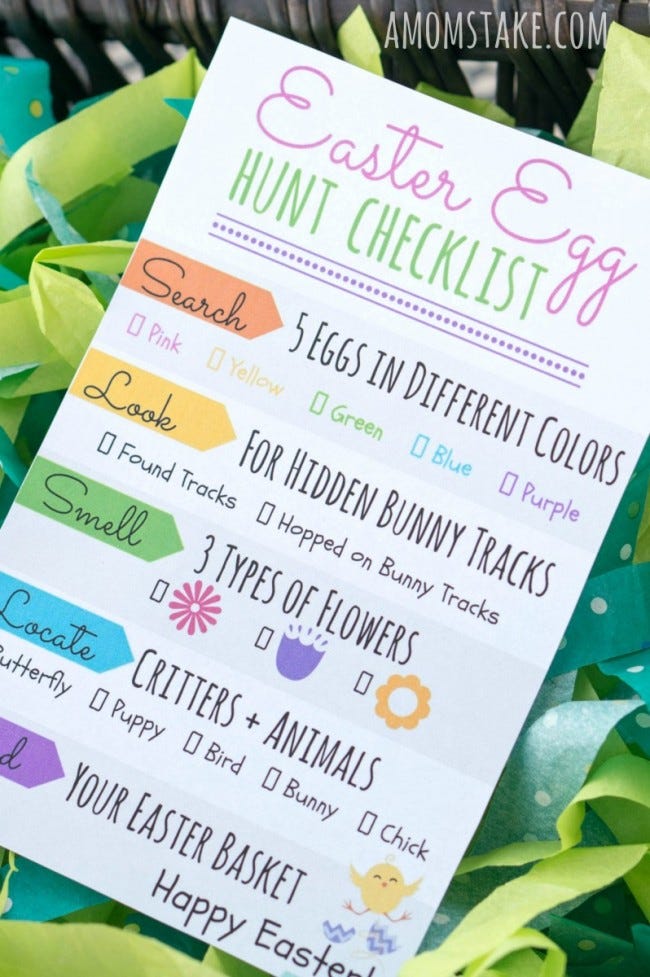 AMOMSTAKE.COM
Easter Egg
HUNT CHECKLIST
Search
5 EGGS IN DIFFERENT COLORS
Pink Yellow Green Blue Purple
Look
FOR HIDDEN BUNNY TRACKS
Found Tracks Hopped on Bunny Tracks
Smell
3 TYPES OF FLOWERS
Locate
CRITTERS + ANIMALS
Butterfly Puppy Bird Bunny Chick
d
YOUR EASTER BASKET
Happy Easter!